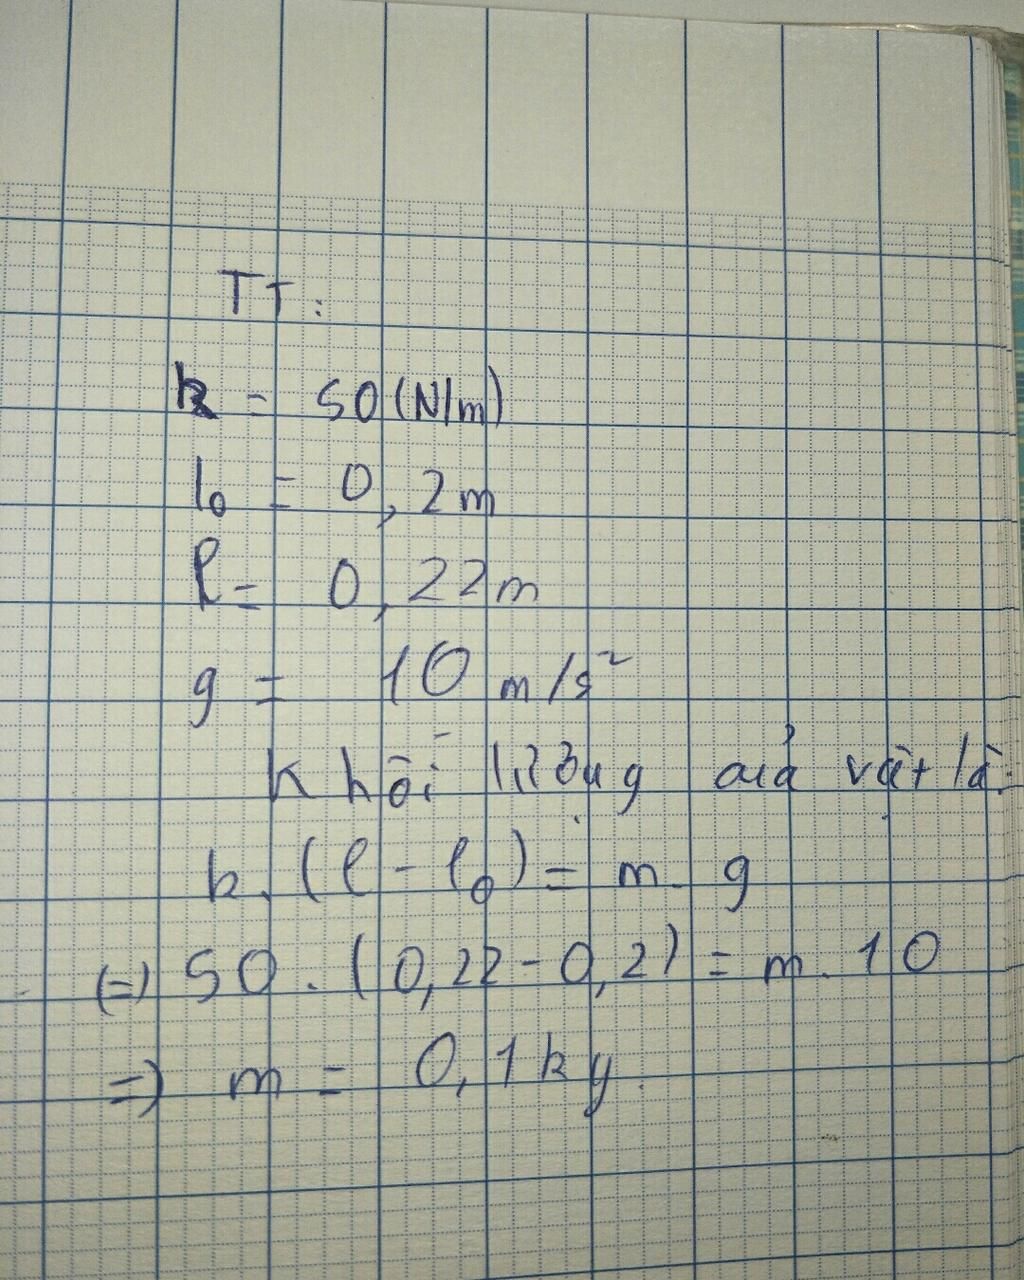 TT:
k = 50 (N/m)
l₀ = 0,2m
l = 0,22m
g = 10 m/s²
Khối lượng của vật là:
k. (l - l₀) = m. g
(=) 50 . (0,22 - 0,2) = m. 10
=) m = 0,1kg.